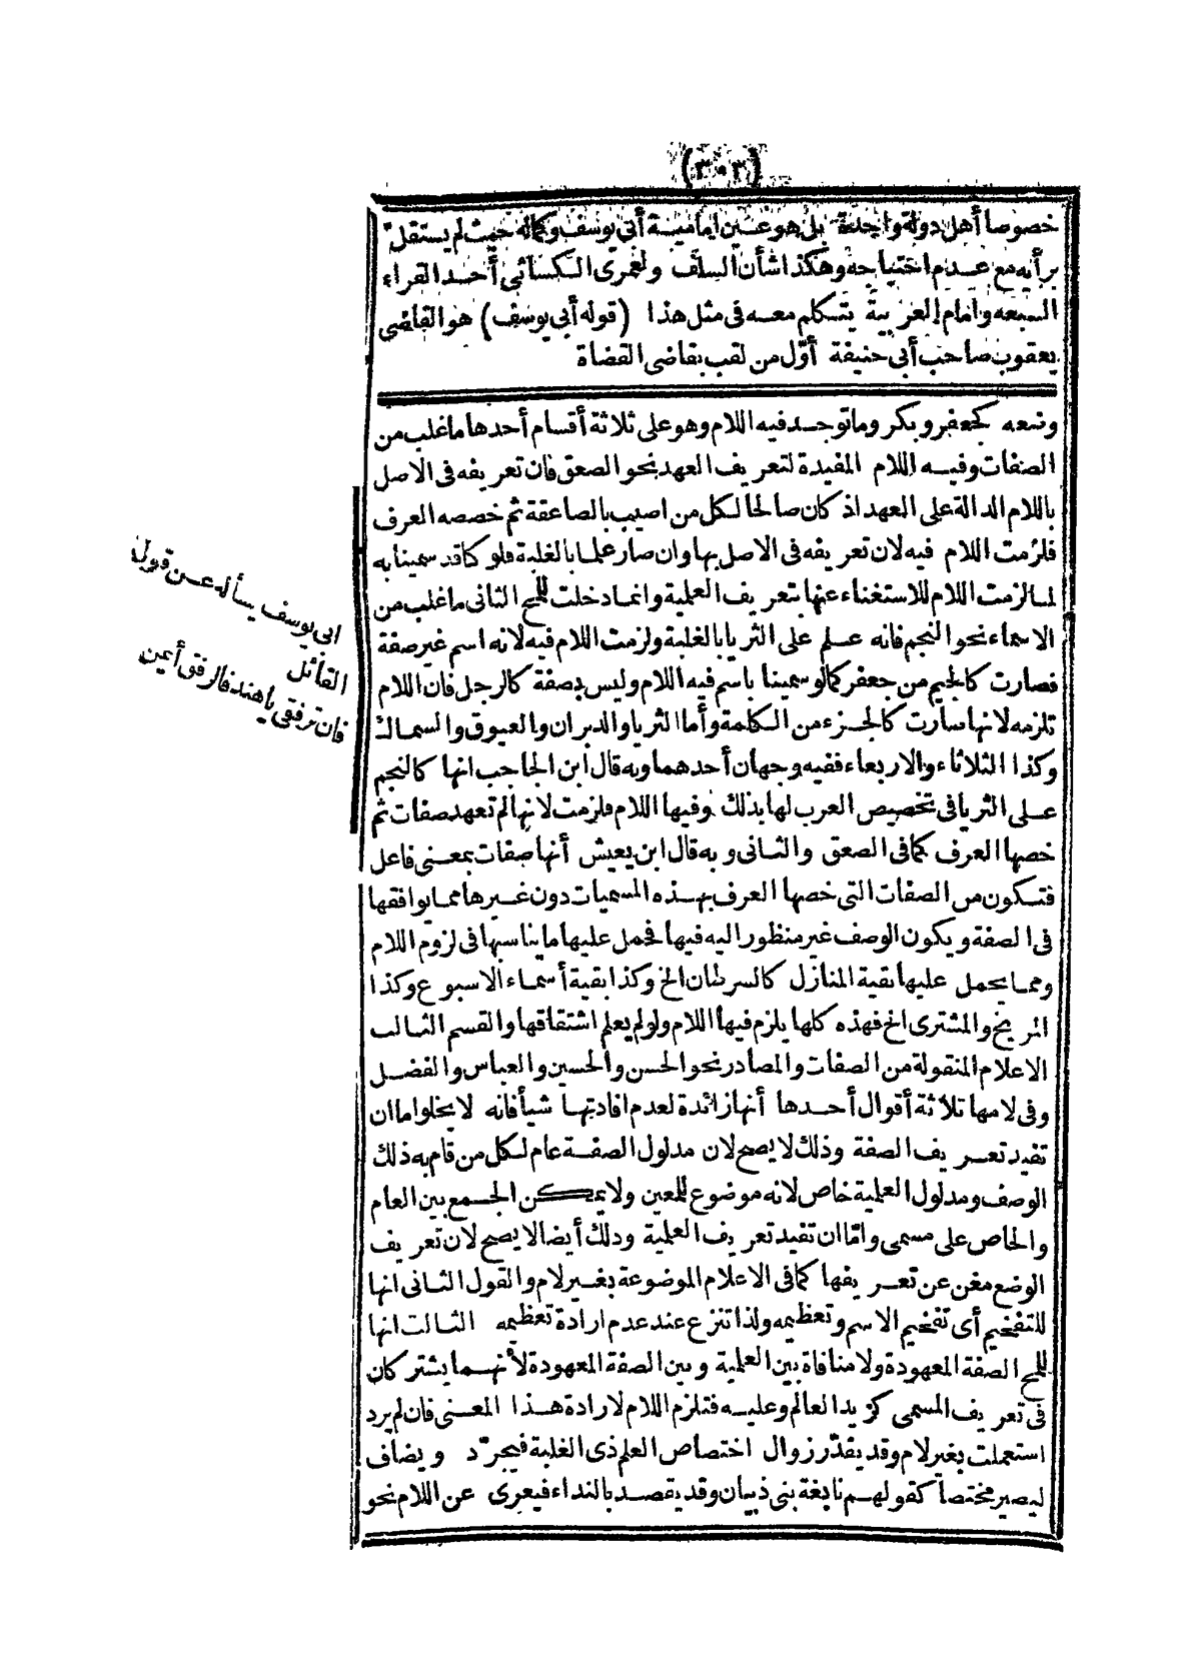 (٣٠٣)
خصوصا أهل دولة واحدة بل هو عين امامية أبى يوسف وكماله حيث لم يستقل
برأيه مع عدم احتياجه وهكذا شأن السلف ولعمرى الكسائى أحد القراء
السبعه وامام العربية يتكلم معه فى مثل هذا (قوله أبى يوسف) هو القاضى
يعقوب صاحب أبى حنيفة أول من لقب بقاضى القضاة
وضعه كجعفر وبكر وما توجد فيه اللام وهو على ثلاثة أقسام أحدها ما غلب من
الصفات وفيه اللام المفيدة لتعريف العهد نحو الصعق فان تعريفه فى الاصل
باللام الدالة على العهد اذ كان صالحا لكل من اصيب بالصاعقة ثم خصصه العرف
فلزمت اللام فيه لان تعريفه فى الاصل بها وان صار علما بالغلبة فلو كا قد سمينا به
لما لزمت اللام للاستغناء عنها بتعريف العلمية وانما دخلت للمح الثانى ما غلب من
الاسماء نحو النجم فانه علم على الثريا بالغلبة ولزمت اللام فيه لانه اسم غير صفة
فصارت كالجيم من جعفر كما لو سمينا باسم فيه اللام وليس بصفة كالرجل فان اللام
تلزمه لانها صارت كالجزء من الكلمة وأما الثريا والدبران والعيوق والسماك
وكذا الثلاثاء والاربعاء ففيه وجهان أحدهما وبه قال ابن الحاجب انها كالنجم
على الثريا فى تخصيص العرب لها بذلك وفيها اللام فلزمت لانها لم تعهد صفات ثم
خصها العرف كما فى الصعق والثانى وبه قال ابن يعيش أنها صفات بمعنى فاعل
فتكون من الصفات التى خصها العرف بهذه المسميات دون غيرها مما يوافقها
فى الصفة ويكون الوصف غير منظور اليه فيها فحمل عليها ما يناسبها فى لزوم اللام
ومما يحمل عليها بقية المنازل كالسرطان الخ وكذا بقية أسماء الاسبوع وكذا
المريخ والمشترى الخ فهذه كلها يلزم فيها اللام ولو لم يعلم اشتقاقها والقسم الثالث
الاعلام المنقولة من الصفات والمصادر نحو الحسن والحسين والعباس والفضل
وفى لامها ثلاثة أقوال أحدها أنها زائدة لعدم افادتها شيأ فانه لا يخلو اما ان
تفيد تعريف الصفة وذلك لا يصح لان مدلول الصفة عام لكل من قام به ذلك
الوصف ومدلول العلمية خاص لانه موضوع للمعين ولا يمكن الجمع بين العام
والخاص على مسمى واما ان تفيد تعريف العلمية وذلك أيضا لا يصح لان تعريف
الوضع مغن عن تعريفها كما فى الاعلام الموضوعة بغير لام والقول الثانى انها
للتفخيم أى تفخيم الاسم وتعظيمه ولذا تنزع عند عدم ارادة تعظيمه الثالث انها
للمح الصفة المعهودة ولا منافاة بين العلمية وبين الصفة المعهودة لأنهما يشتركان
فى تعريف المسمى كزيد العالم وعليه فتلزم اللام لارادة هذا المعنى فان لم يرد
استعملت بغير لام وقد يقدر زوال اختصاص العلم ذى الغلبة فيجرد ويضاف
ليصير مختصا كقولهم نابغة بنى ذبيان وقد يقصد بالنداء فيعرى عن اللام نحو
ابى يوسف يسأله عن قول
القائل
فان ترفقى يا هند فالرفق أيمن